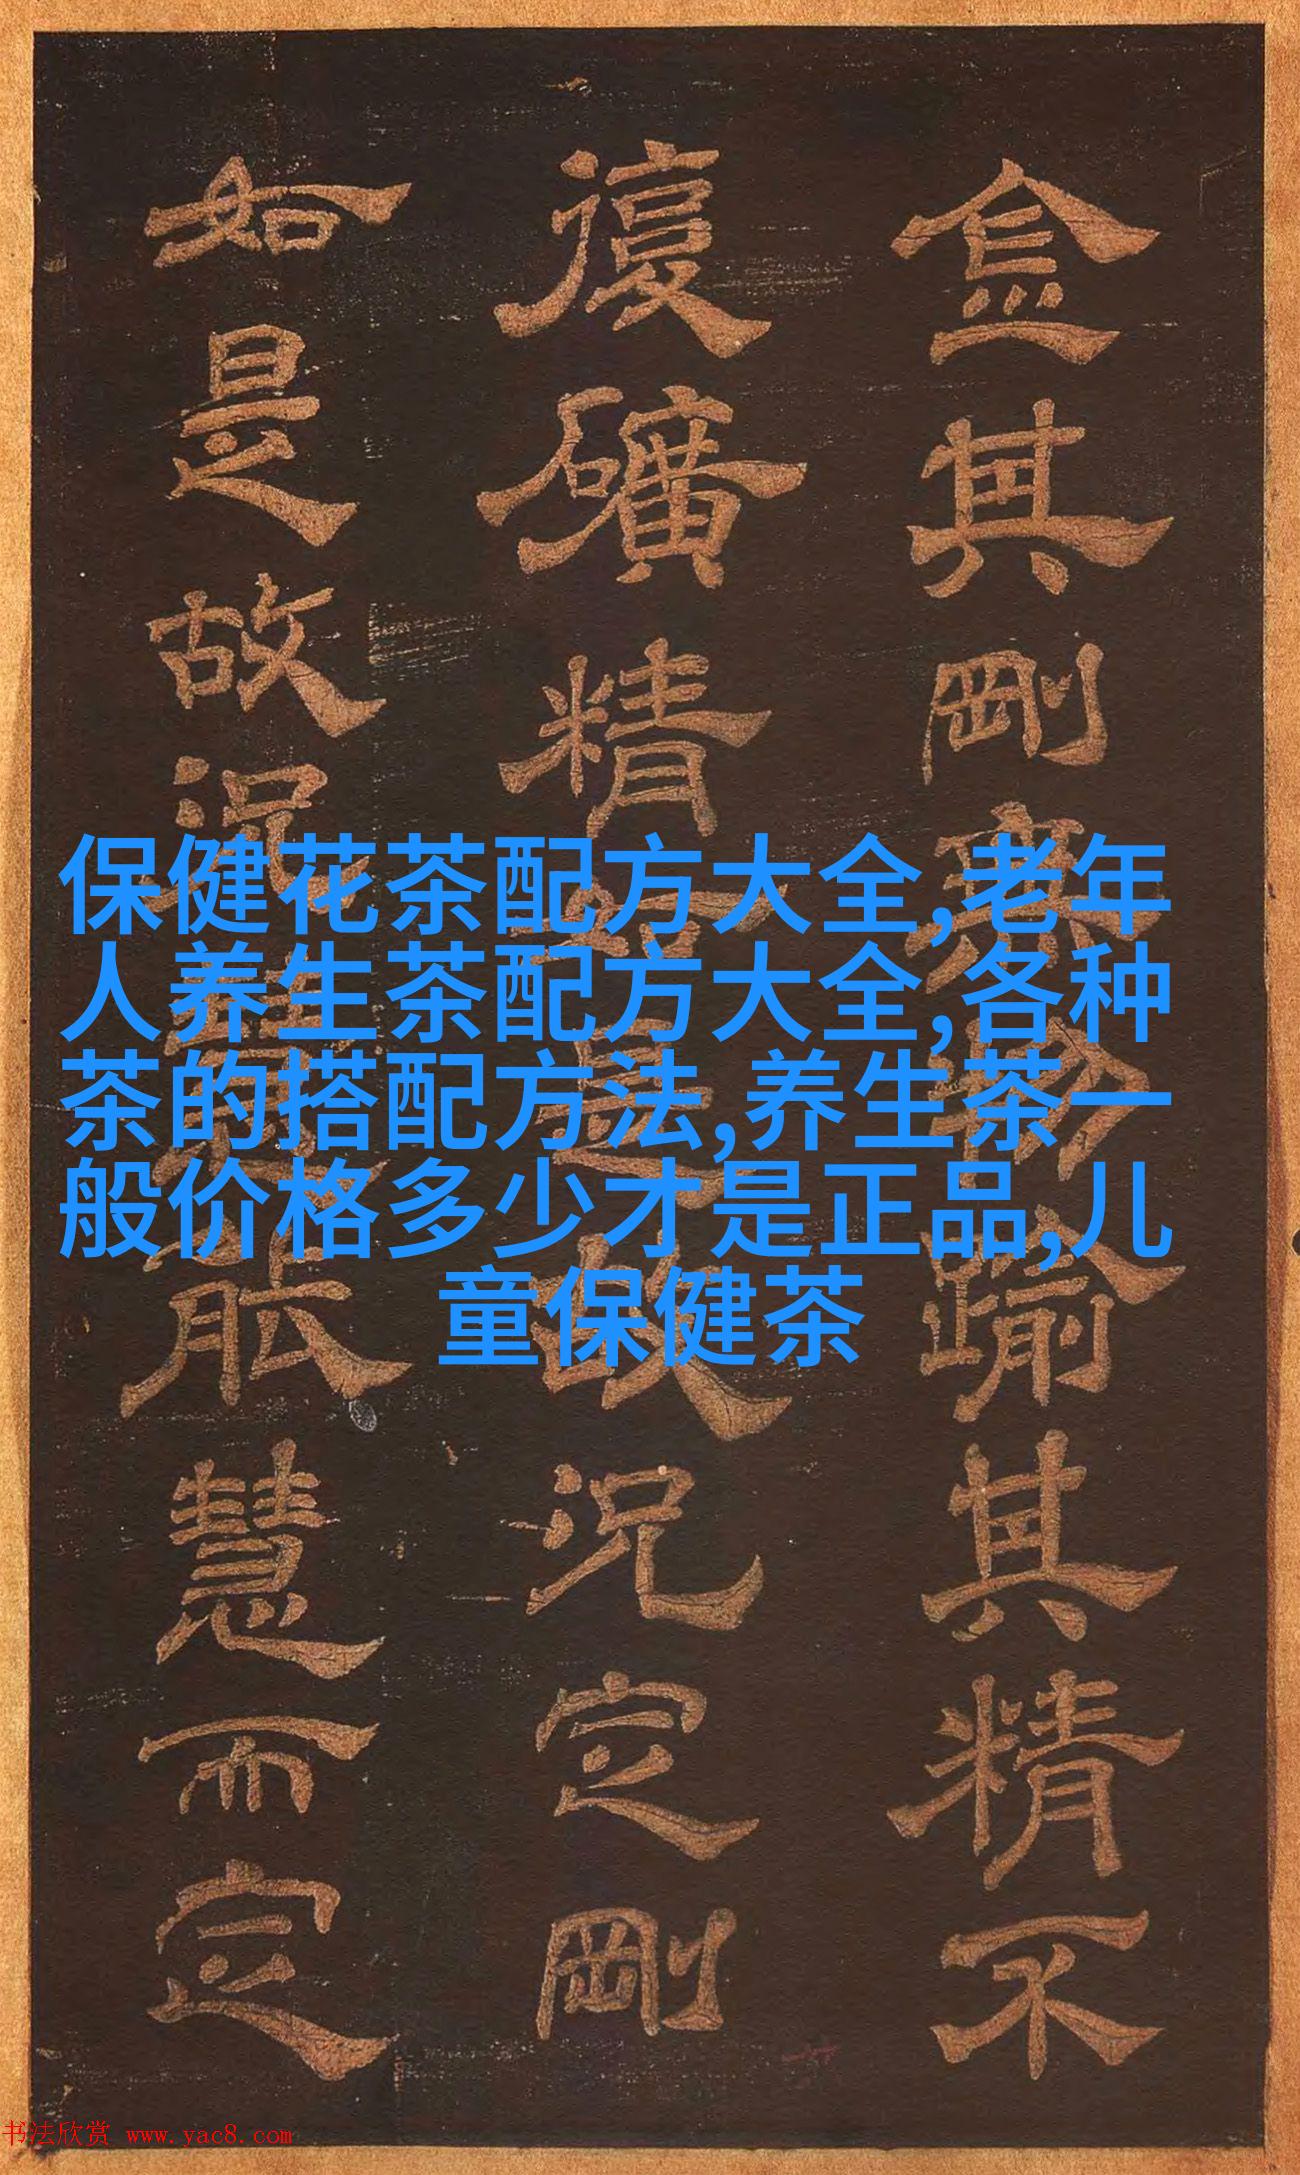 金其剛踰其精不
復礦精是故況定剛
如是故況能慧而定
保健花茶配方大全,老年
人养生茶配方大全,各种
茶的搭配方法,养生茶一
般价格多少才是正品,儿
童保健茶
书法欣赏 www.yac8.com